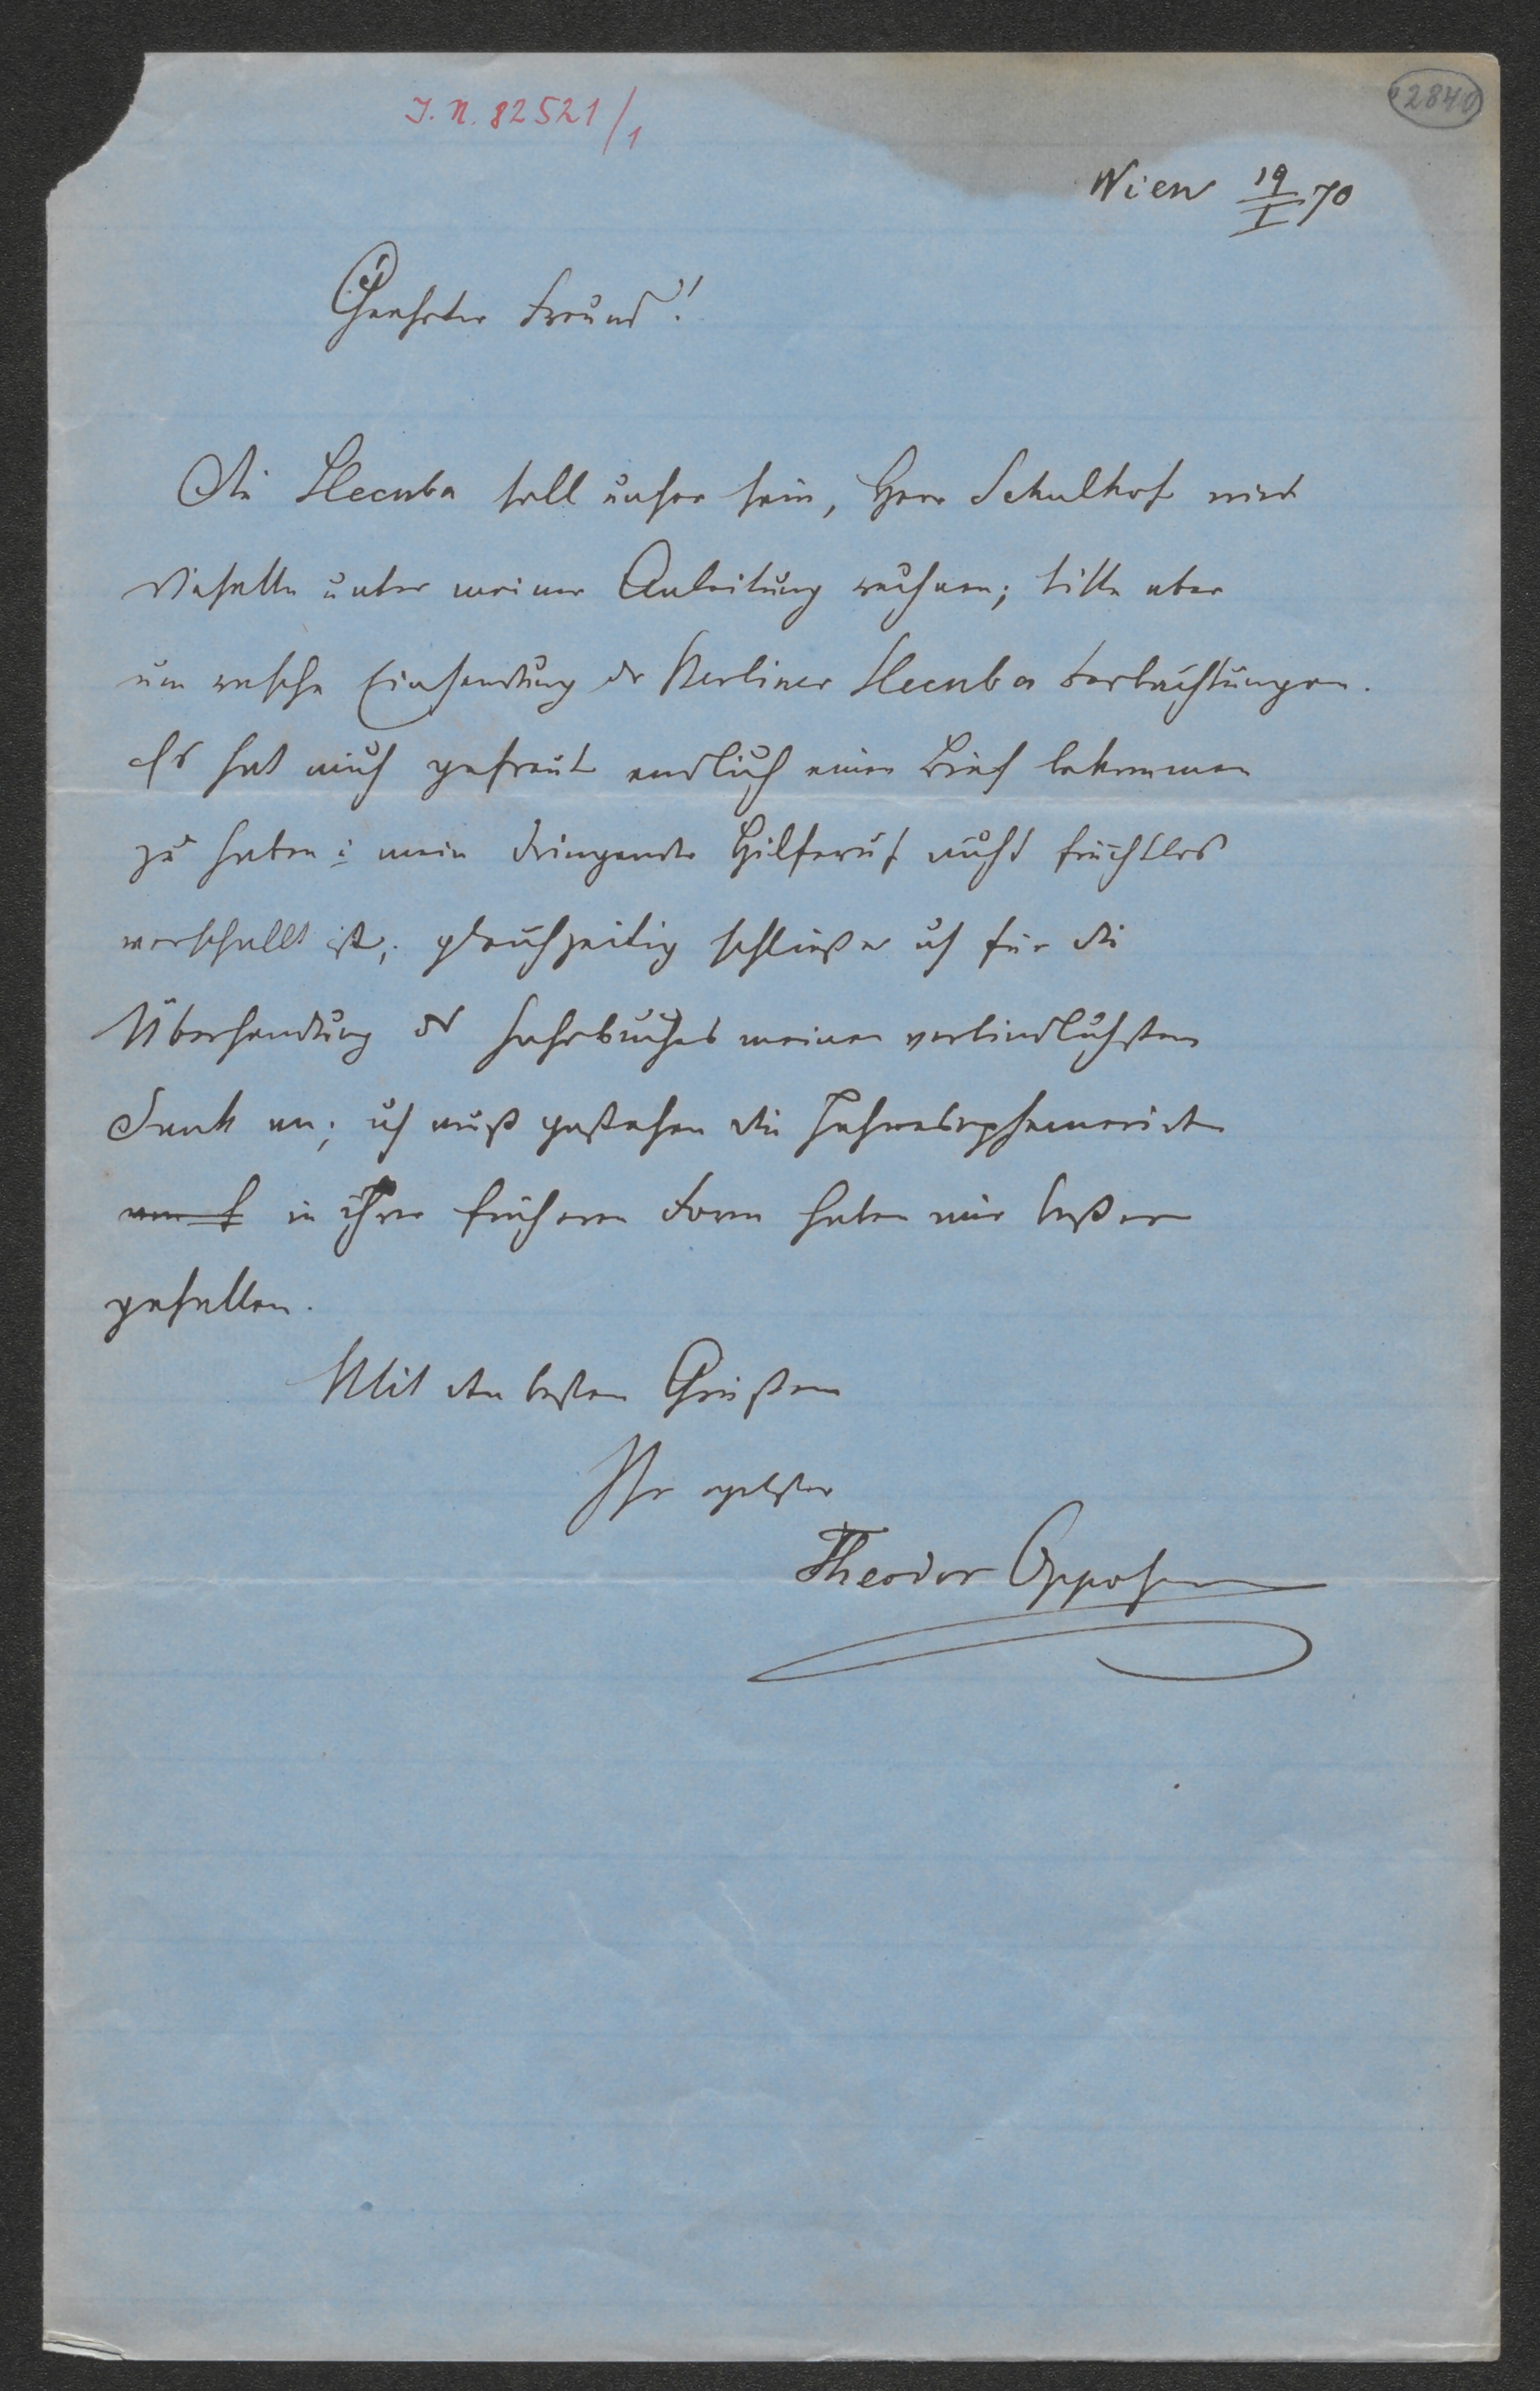 J. N. 82521/1
2840
Wien 19/I 70
Geehrter Freund!
Die Hecuba soll unser sein, Herr Schulhof wird
dieselbe unter meiner Anleitung rechnen; bitte aber
um rasche Einsendung der Berliner Hecuba Beobachtungen.
Es hat mich gefreut endlich einen Brief bekommen
zu haben; mein dringender Hilferuf nicht fruchtlos
verschallt ist; gleichzeitig schließe ich für die
Übersendung des Jahrbuches meinen verbindlichsten
Dank an; ich muß gestehen die Jahresephemeriden
in ihrer früheren Form haben mir besser
gefallen.
Mit den besten Grüßen
Ihr
Theodor Oppolzer